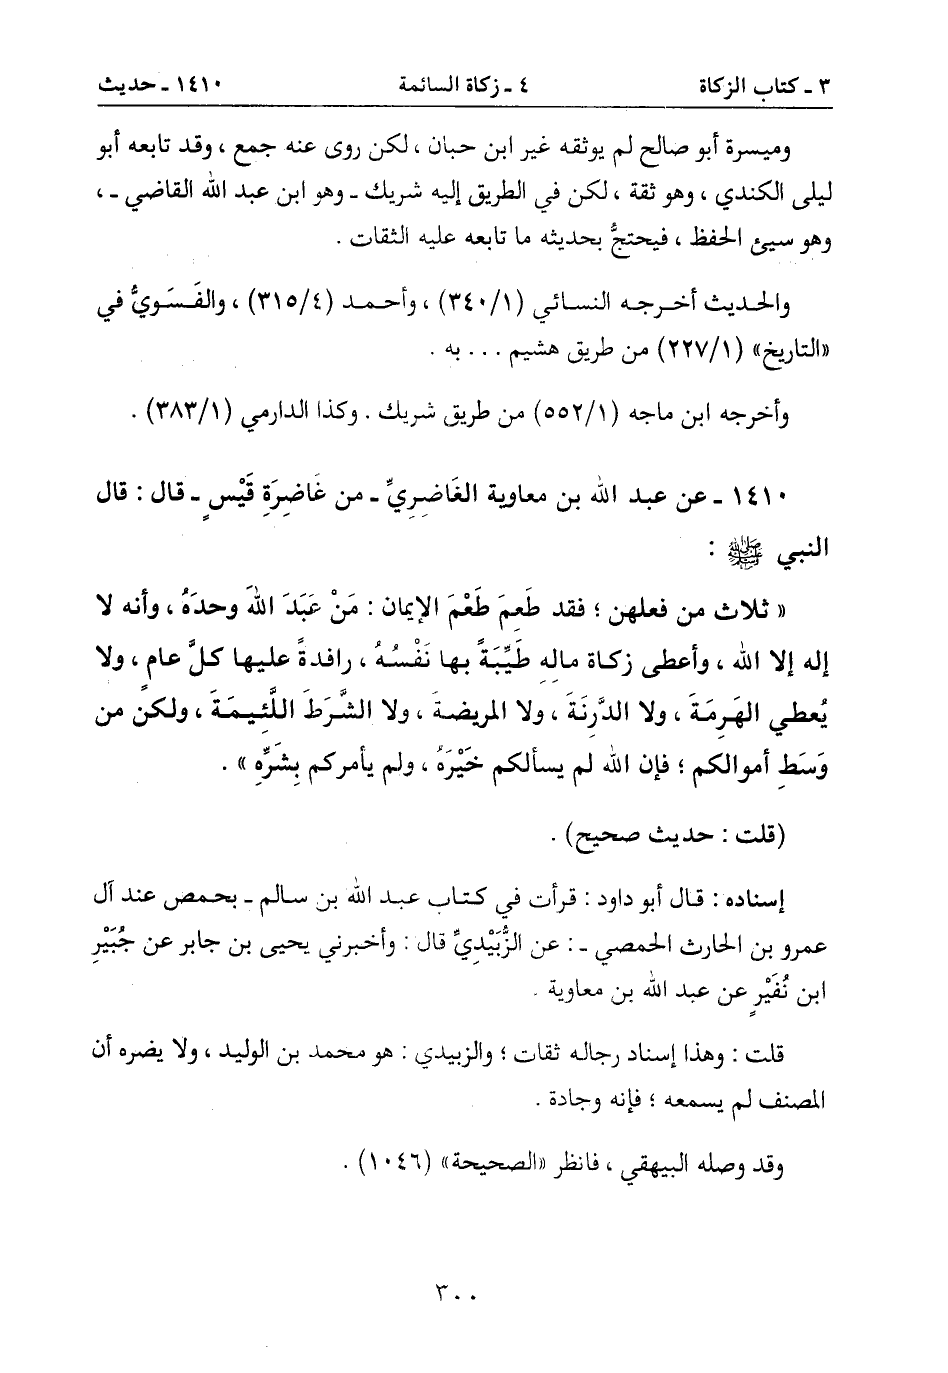 ٣ ـ كتاب الزكاة ٤ ـ زكاة السائمة ١٤١٠ ـ حديث
وميسرة أبو صالح لم يوثقه غير ابن حبان ، لكن روى عنه جمع ، وقد تابعه أبو
ليلى الكندي ، وهو ثقة ، لكن في الطريق إليه شريك ـ وهو ابن عبد الله القاضي ـ ،
وهو سيئ الحفظ ، فيحتجُّ بحديثه ما تابعه عليه الثقات .
والحديث أخرجه النسائي (٣٤٠/١) ، وأحمد (٣١٥/٤) ، والفَسَويُّ في
«التاريخ» (٢٢٧/١) من طريق هشيم ... به .
وأخرجه ابن ماجه (٥٥٢/١) من طريق شريك . وكذا الدارمي (٣٨٣/١) .
١٤١٠ ـ عن عبد الله بن معاوية الغَاضِرِيِّ ـ من غَاضِرَةِ قَيْسٍ ـ قال : قال
النبي ﷺ :
« ثلاث من فعلهن ؛ فقد طَعِمَ طَعْمَ الإيمان : مَنْ عَبَدَ اللهَ وحدَهُ ، وأنه لا
إله إلا الله ، وأعطى زكاة مالِهِ طَيِّبَةً بها نَفْسُهُ ، رافدةً عليها كلَّ عامٍ ، ولا
يُعطي الهَرِمَةَ ، ولا الدَّرِنَةَ ، ولا المريضةَ ، ولا الشَّرَطَ اللَّئِيمَةَ ، ولكن من
وَسَطِ أموالكم ؛ فإن الله لم يسألكم خَيْرَهُ ، ولم يأمركم بِشَرِّهِ » .
(قلت : حديث صحيح) .
إسناده : قال أبو داود : قرأت في كتاب عبد الله بن سالم ـ بحمص عند آل
عمرو بن الحارث الحمصي ـ : عن الزُّبَيْدِيِّ قال : وأخبرني يحيى بن جابر عن جُبَيْرِ
ابن نُفَيْرٍ عن عبد الله بن معاوية .
قلت : وهذا إسناد رجاله ثقات ؛ والزبيدي : هو محمد بن الوليد ، ولا يضره أن
المصنف لم يسمعه ؛ فإنه وجادة .
وقد وصله البيهقي ، فانظر «الصحيحة» (١٠٤٦) .
٣٠٠